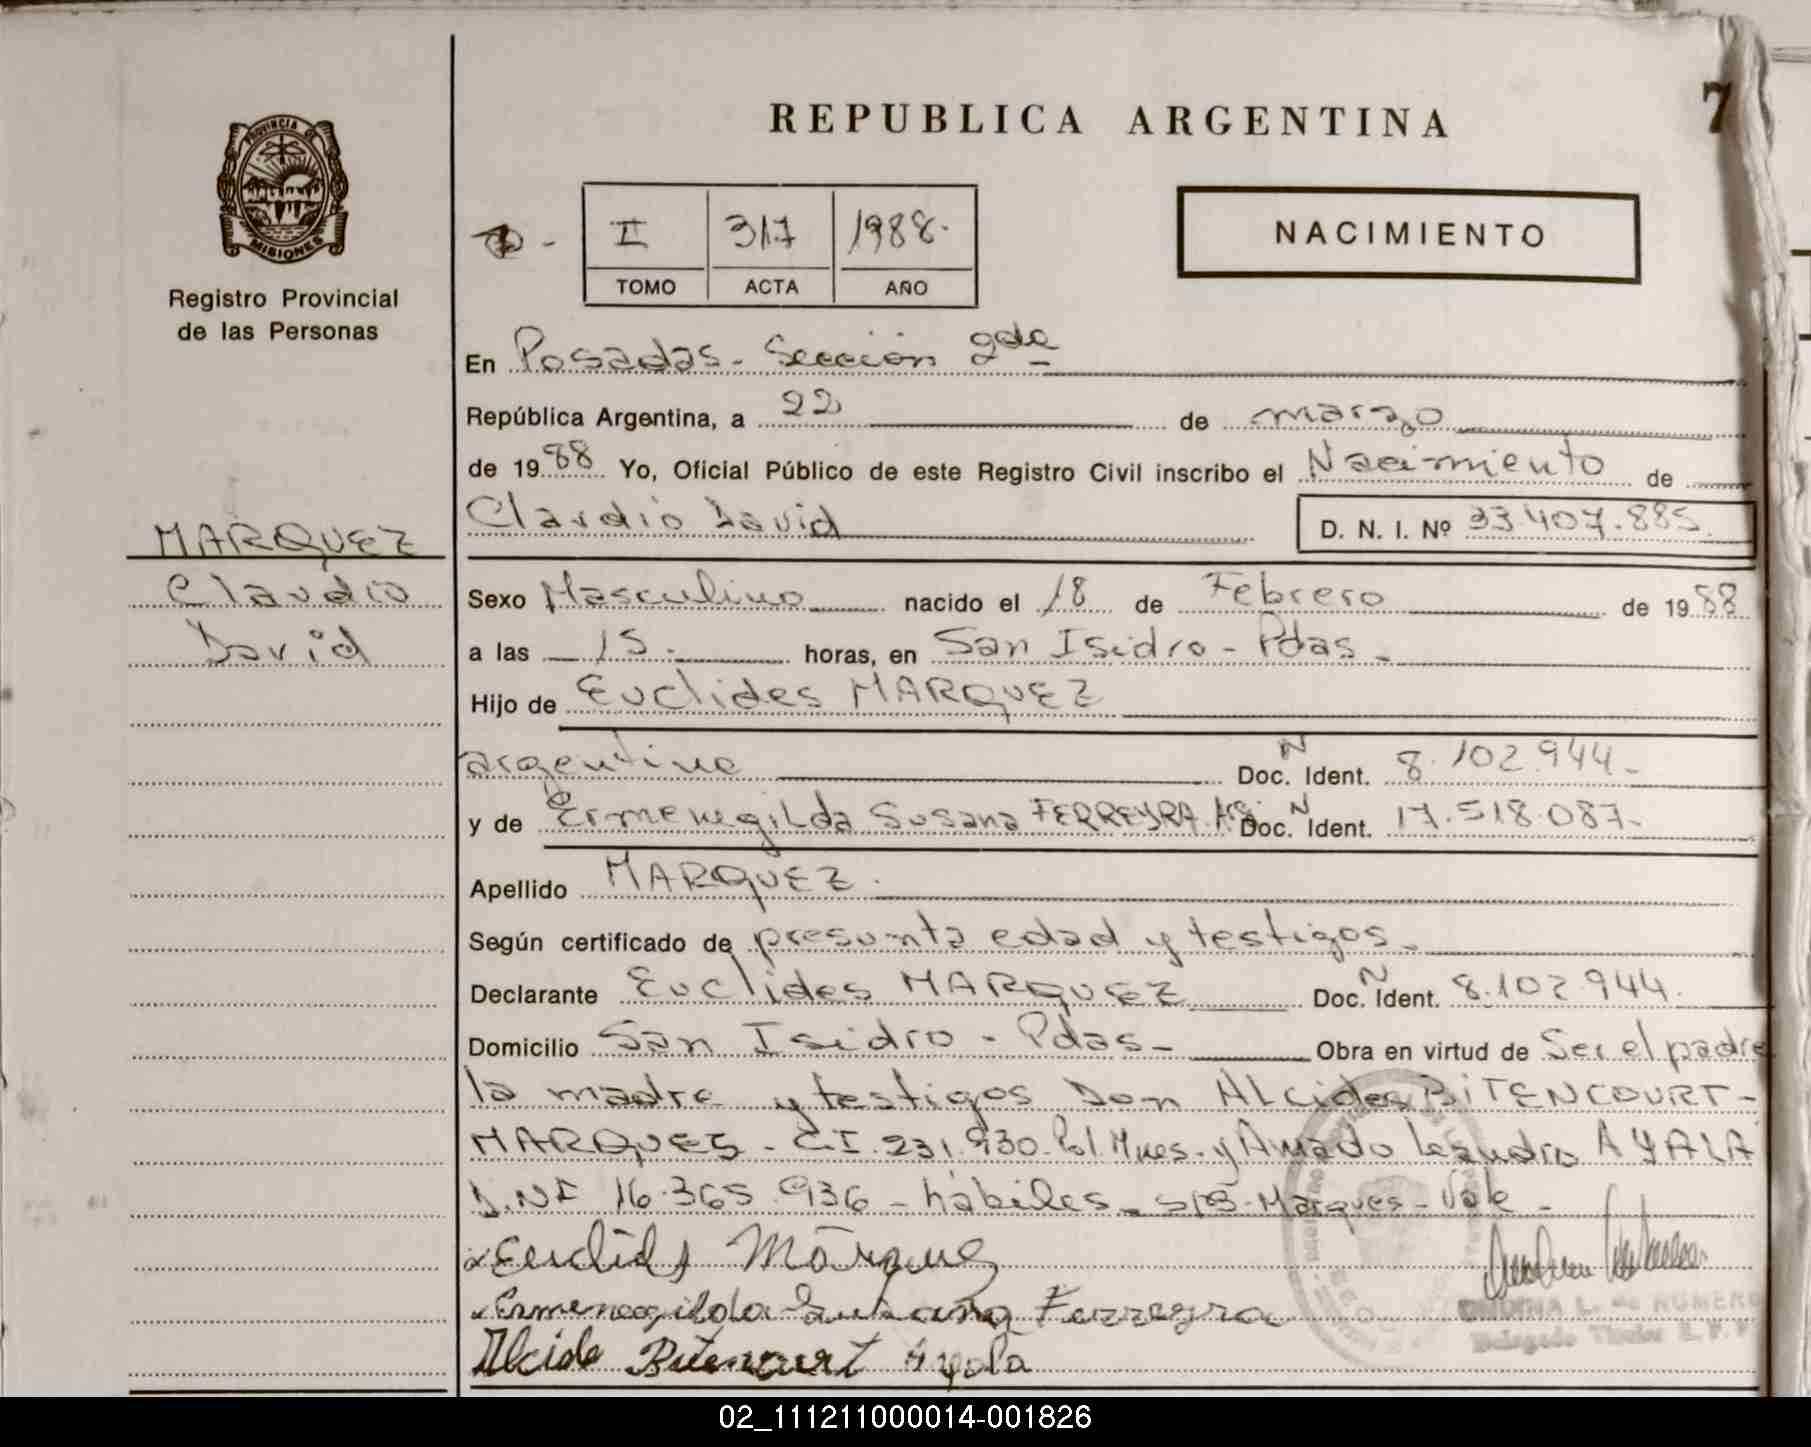 REPUBLICA ARGENTINA
7
PROVINCIA DE
MISIONES
Registro Provincial
de las Personas
II 317 1988.
TOMO ACTA AÑO
NACIMIENTO
En Posadas - Sección 2da
República Argentina, a 22 de marzo
de 1988 Yo, Oficial Público de este Registro Civil inscribo el Nacimiento de
Claudio David D. N. I. Nº 33.407.885.
MARQUEZ
Claudio
David
Sexo Masculino nacido el 18 de Febrero de 1988
a las 15. horas, en San Isidro - Pdas -
Hijo de Euclides MARQUEZ
argentino N Doc. Ident. 8.102.944 -
y de Ermenegilda Susana FERREYRA Arg. N Doc. Ident. 17.518.087 -
Apellido MARQUEZ.
Según certificado de presunta edad y testigos.
Declarante Euclides MARQUEZ N Doc. Ident. 8.102.944.
Domicilio San Isidro - Pdas - Obra en virtud de Ser el padre
la madre y testigos Don Alcides BITENCOURT -
MARQUES - C.I. 231.930. Pol. Mnes. y Amado Leandro AYALA
D.N.I 16.365.936 - hábiles - S/B - Marques - Vale -
x Euclides Márquez
x Ermenegilda Susana Ferreyra
Alcide Bitencurt Ayala
L. de ROMERO
Delegado Titular R.P.P
02_111211000014-001826